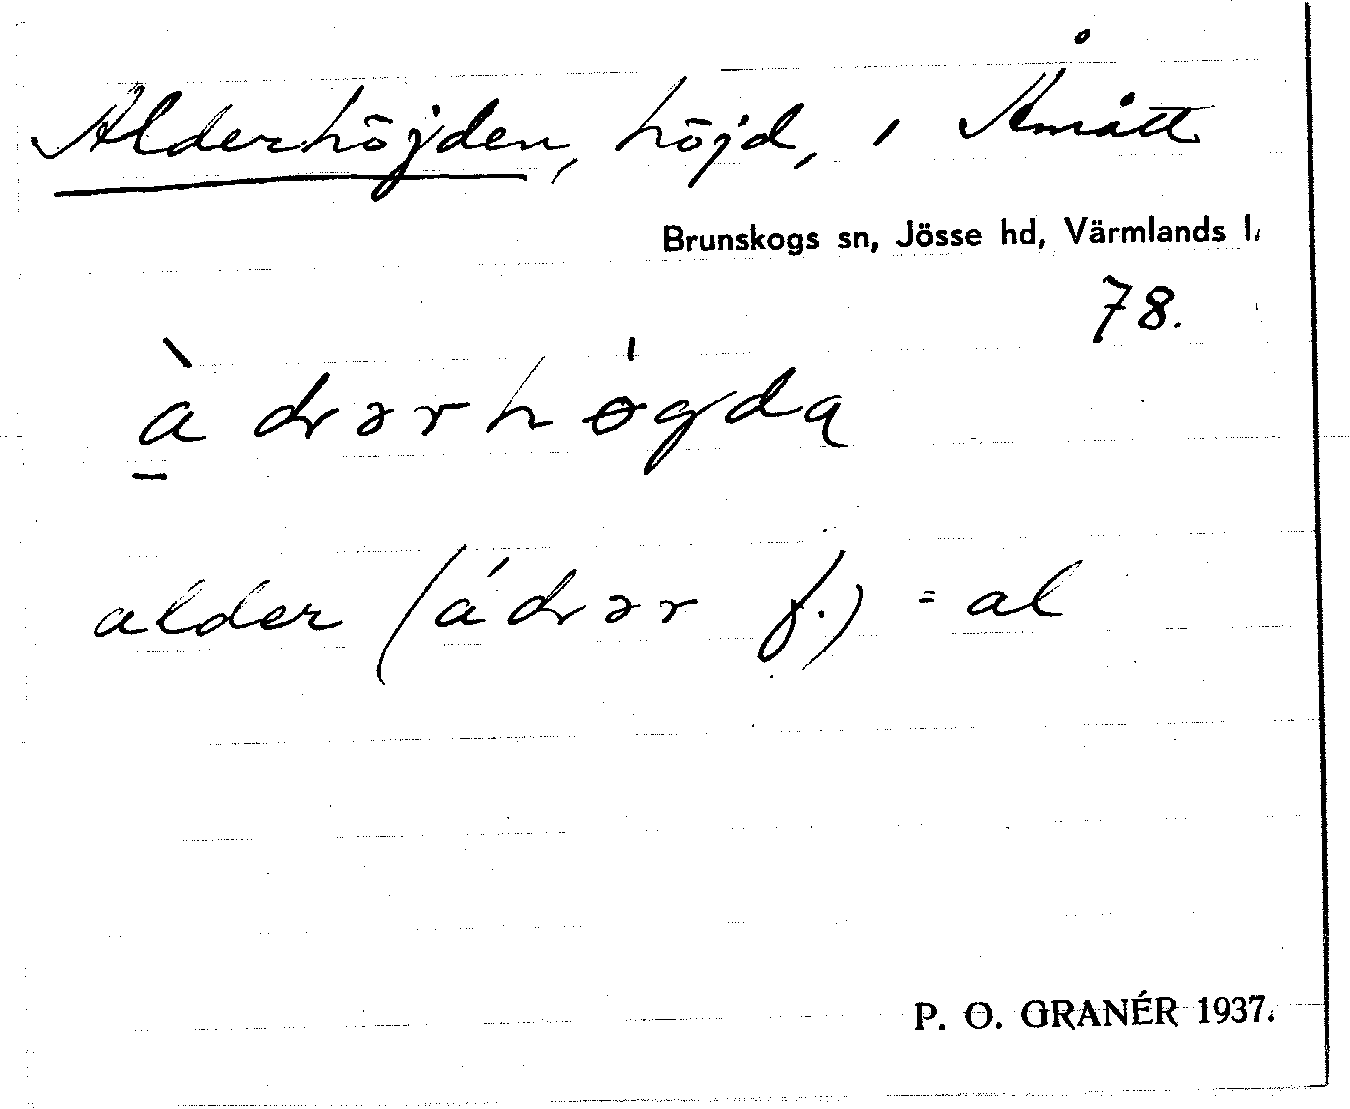 Alderhöjden, höjd, i Åmått
Brunskogs sn, Jösse hd, Värmlands l.
78.
àdrərhøgda
alder (ádrər f.) = al
P. O. GRANÉR 1937.